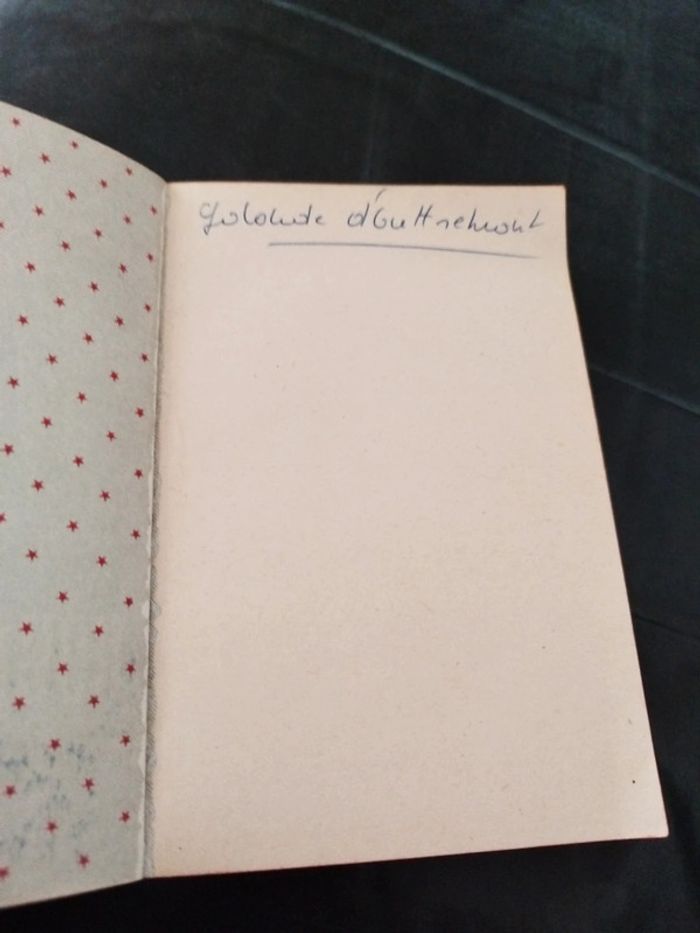 Yolande d'Oultremont